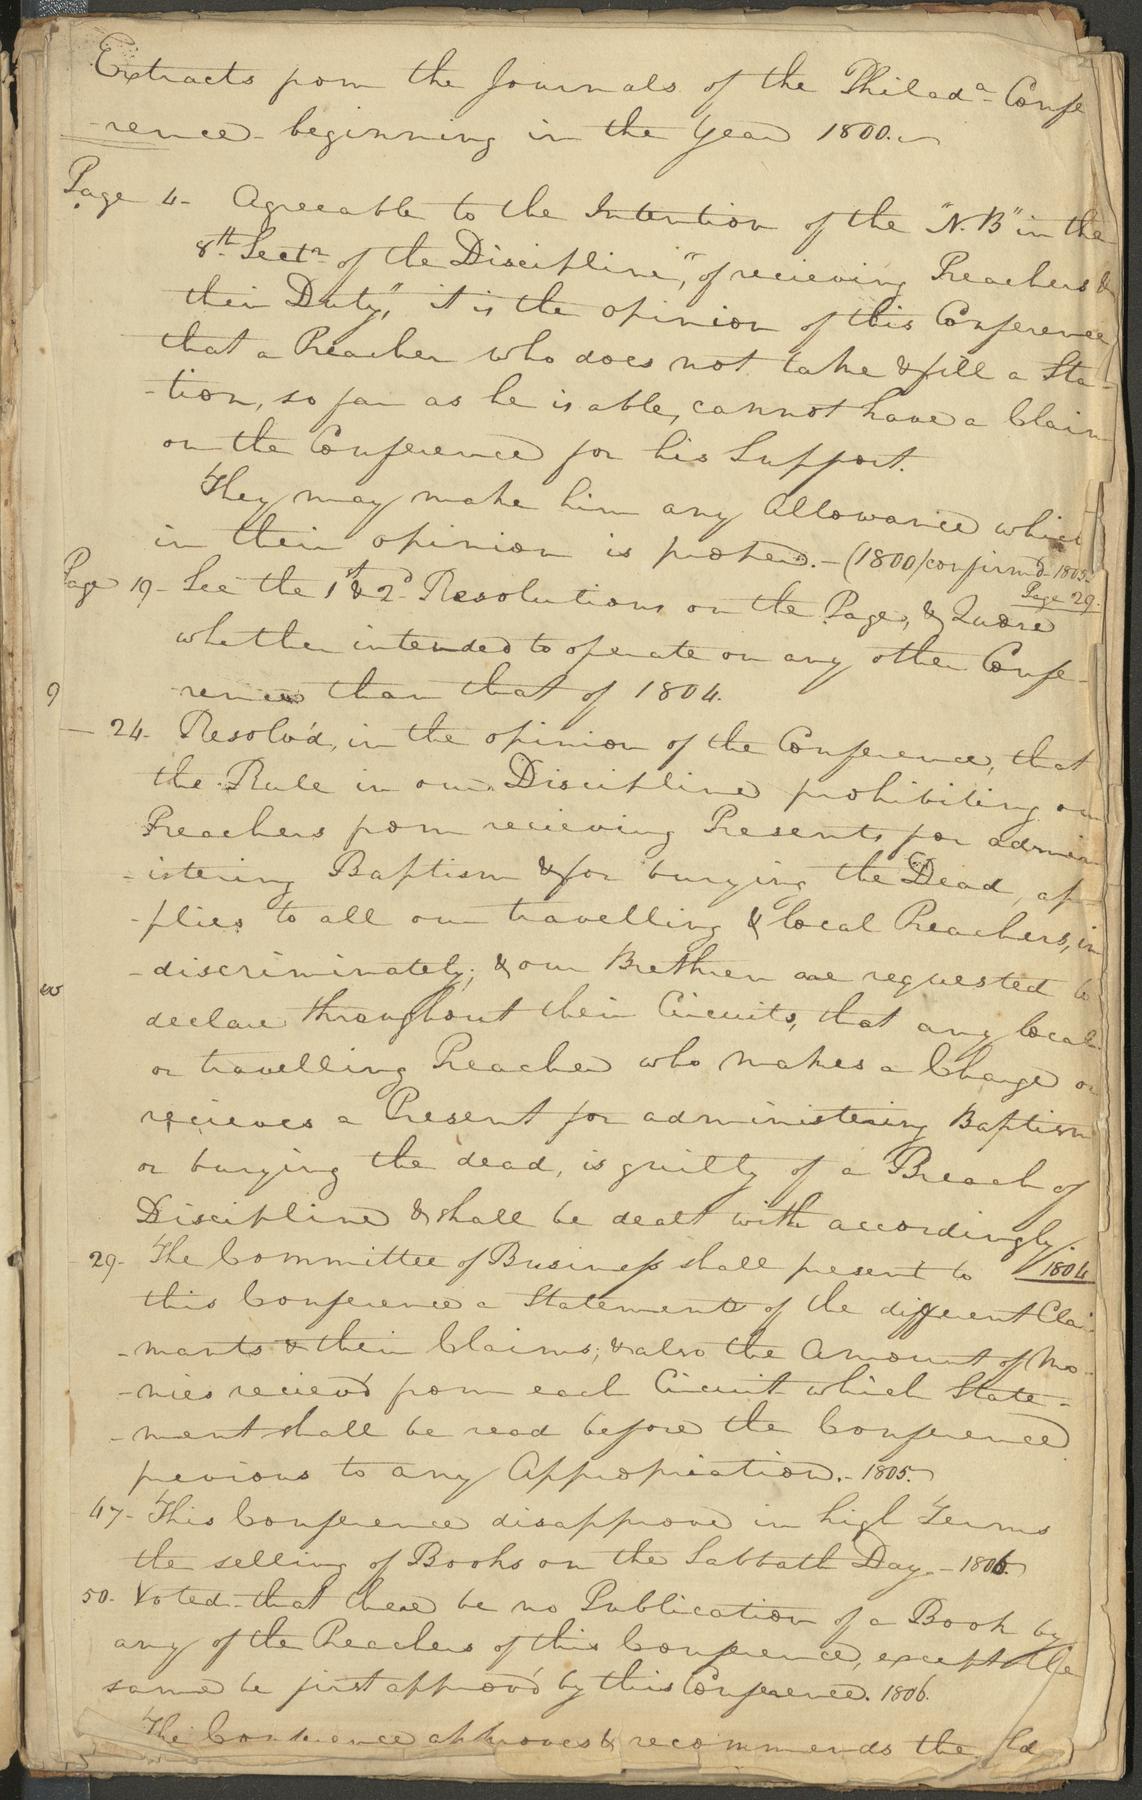 Extracts from the Journals of the Philada- Confe
-rence- beginning in the Year 1800.
Page 4- Agreeable to the Intention of the "N.B" in the
8th Sectn of the Discipline, "of recieving Preachers &
their Duty," it is the opinion of this Conference
that a Preacher who does not take & fill a Sta-
-tion, so far as he is able, cannot have a Claim
on the Conference for his Support.
They may make him any Allowance which
in their opinion is proper. - (1800/confirmd- 1805-
Page 29.
Page 19- See the 1st & 2d Resolutions on the Page, & Quære
whether intended to operate on any other Confe-
-rence than that of 1804.
9
— 24- Resolv'd, in the opinion of the Conference, that
the Rule in our Discipline prohibiting our
Preachers from recieving Presents for admin
-istering Baptism & for burying the Dead, ap-
-plies to all our travelling & local Preachers, in
-discriminately; & our Brethren are requested to
declare throughout their Circuits, that any local
or travelling Preacher who makes a Charge or
recieves a Present for administering Baptism
or burying the dead, is guilty of a Breach of
Discipline & shall be dealt with accordingly.
1804
29- The Committee of Business shall present to
this Conference a Statement of the different Clai-
-mants & their Claims; & also the Amount of Mo-
-nies reciev'd from each Circuit which State-
-ment shall be read before the Conference
previous to any Appropriation. - 1805.
47- This Conference disapprove in high Terms
the selling of Books on the Sabbath Day. - 1806
50- Voted- that there be no Publication of a Book by
any of the Preachers of this Conference, except the
same be first approv'd by this Conference. 1806.
The Conference approves & recommends the